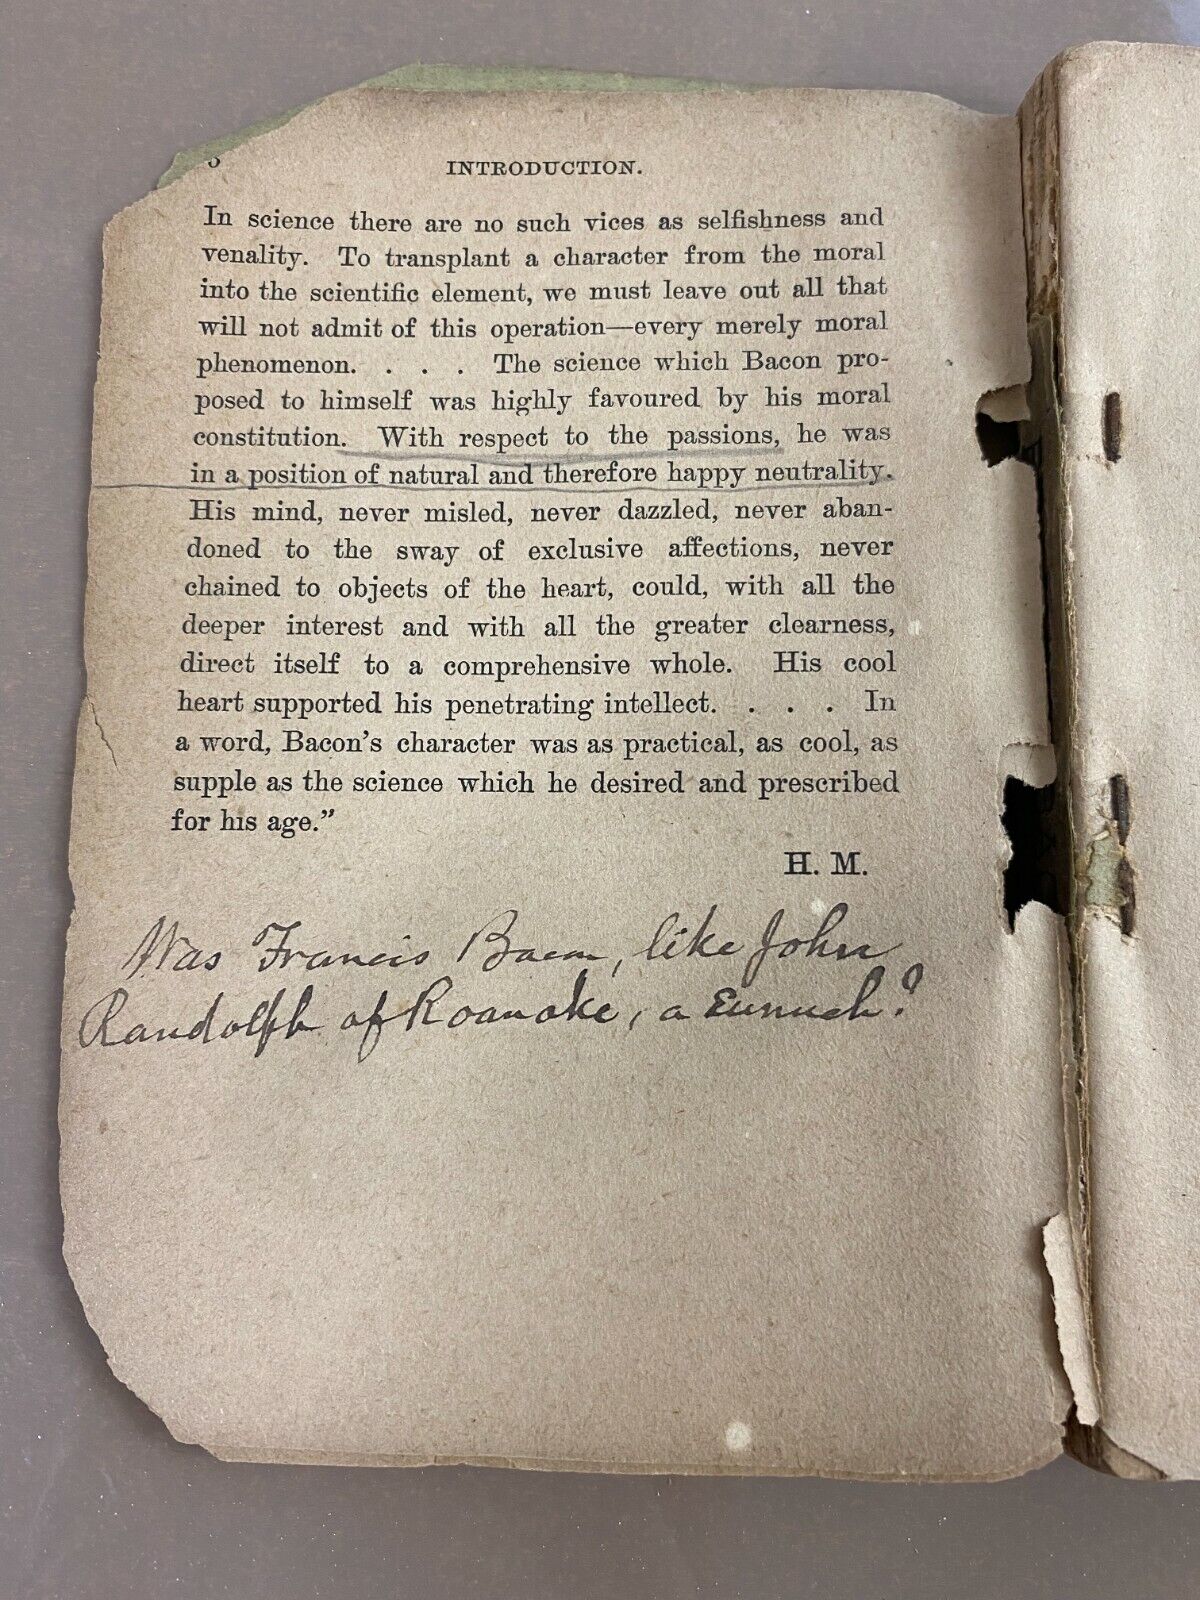 INTRODUCTION.
In science there are no such vices as selfishness and
venality. To transplant a character from the moral
into the scientific element, we must leave out all that
will not admit of this operation—every merely moral
phenomenon. . . . The science which Bacon pro-
posed to himself was highly favoured by his moral
constitution. With respect to the passions, he was
in a position of natural and therefore happy neutrality.
His mind, never misled, never dazzled, never aban-
doned to the sway of exclusive affections, never
chained to objects of the heart, could, with all the
deeper interest and with all the greater clearness,
direct itself to a comprehensive whole. His cool
heart supported his penetrating intellect. . . . In
a word, Bacon's character was as practical, as cool, as
supple as the science which he desired and prescribed
for his age."
H. M.
Was Francis Bacon, like John
Randolph of Roanoke, a Eunuch?